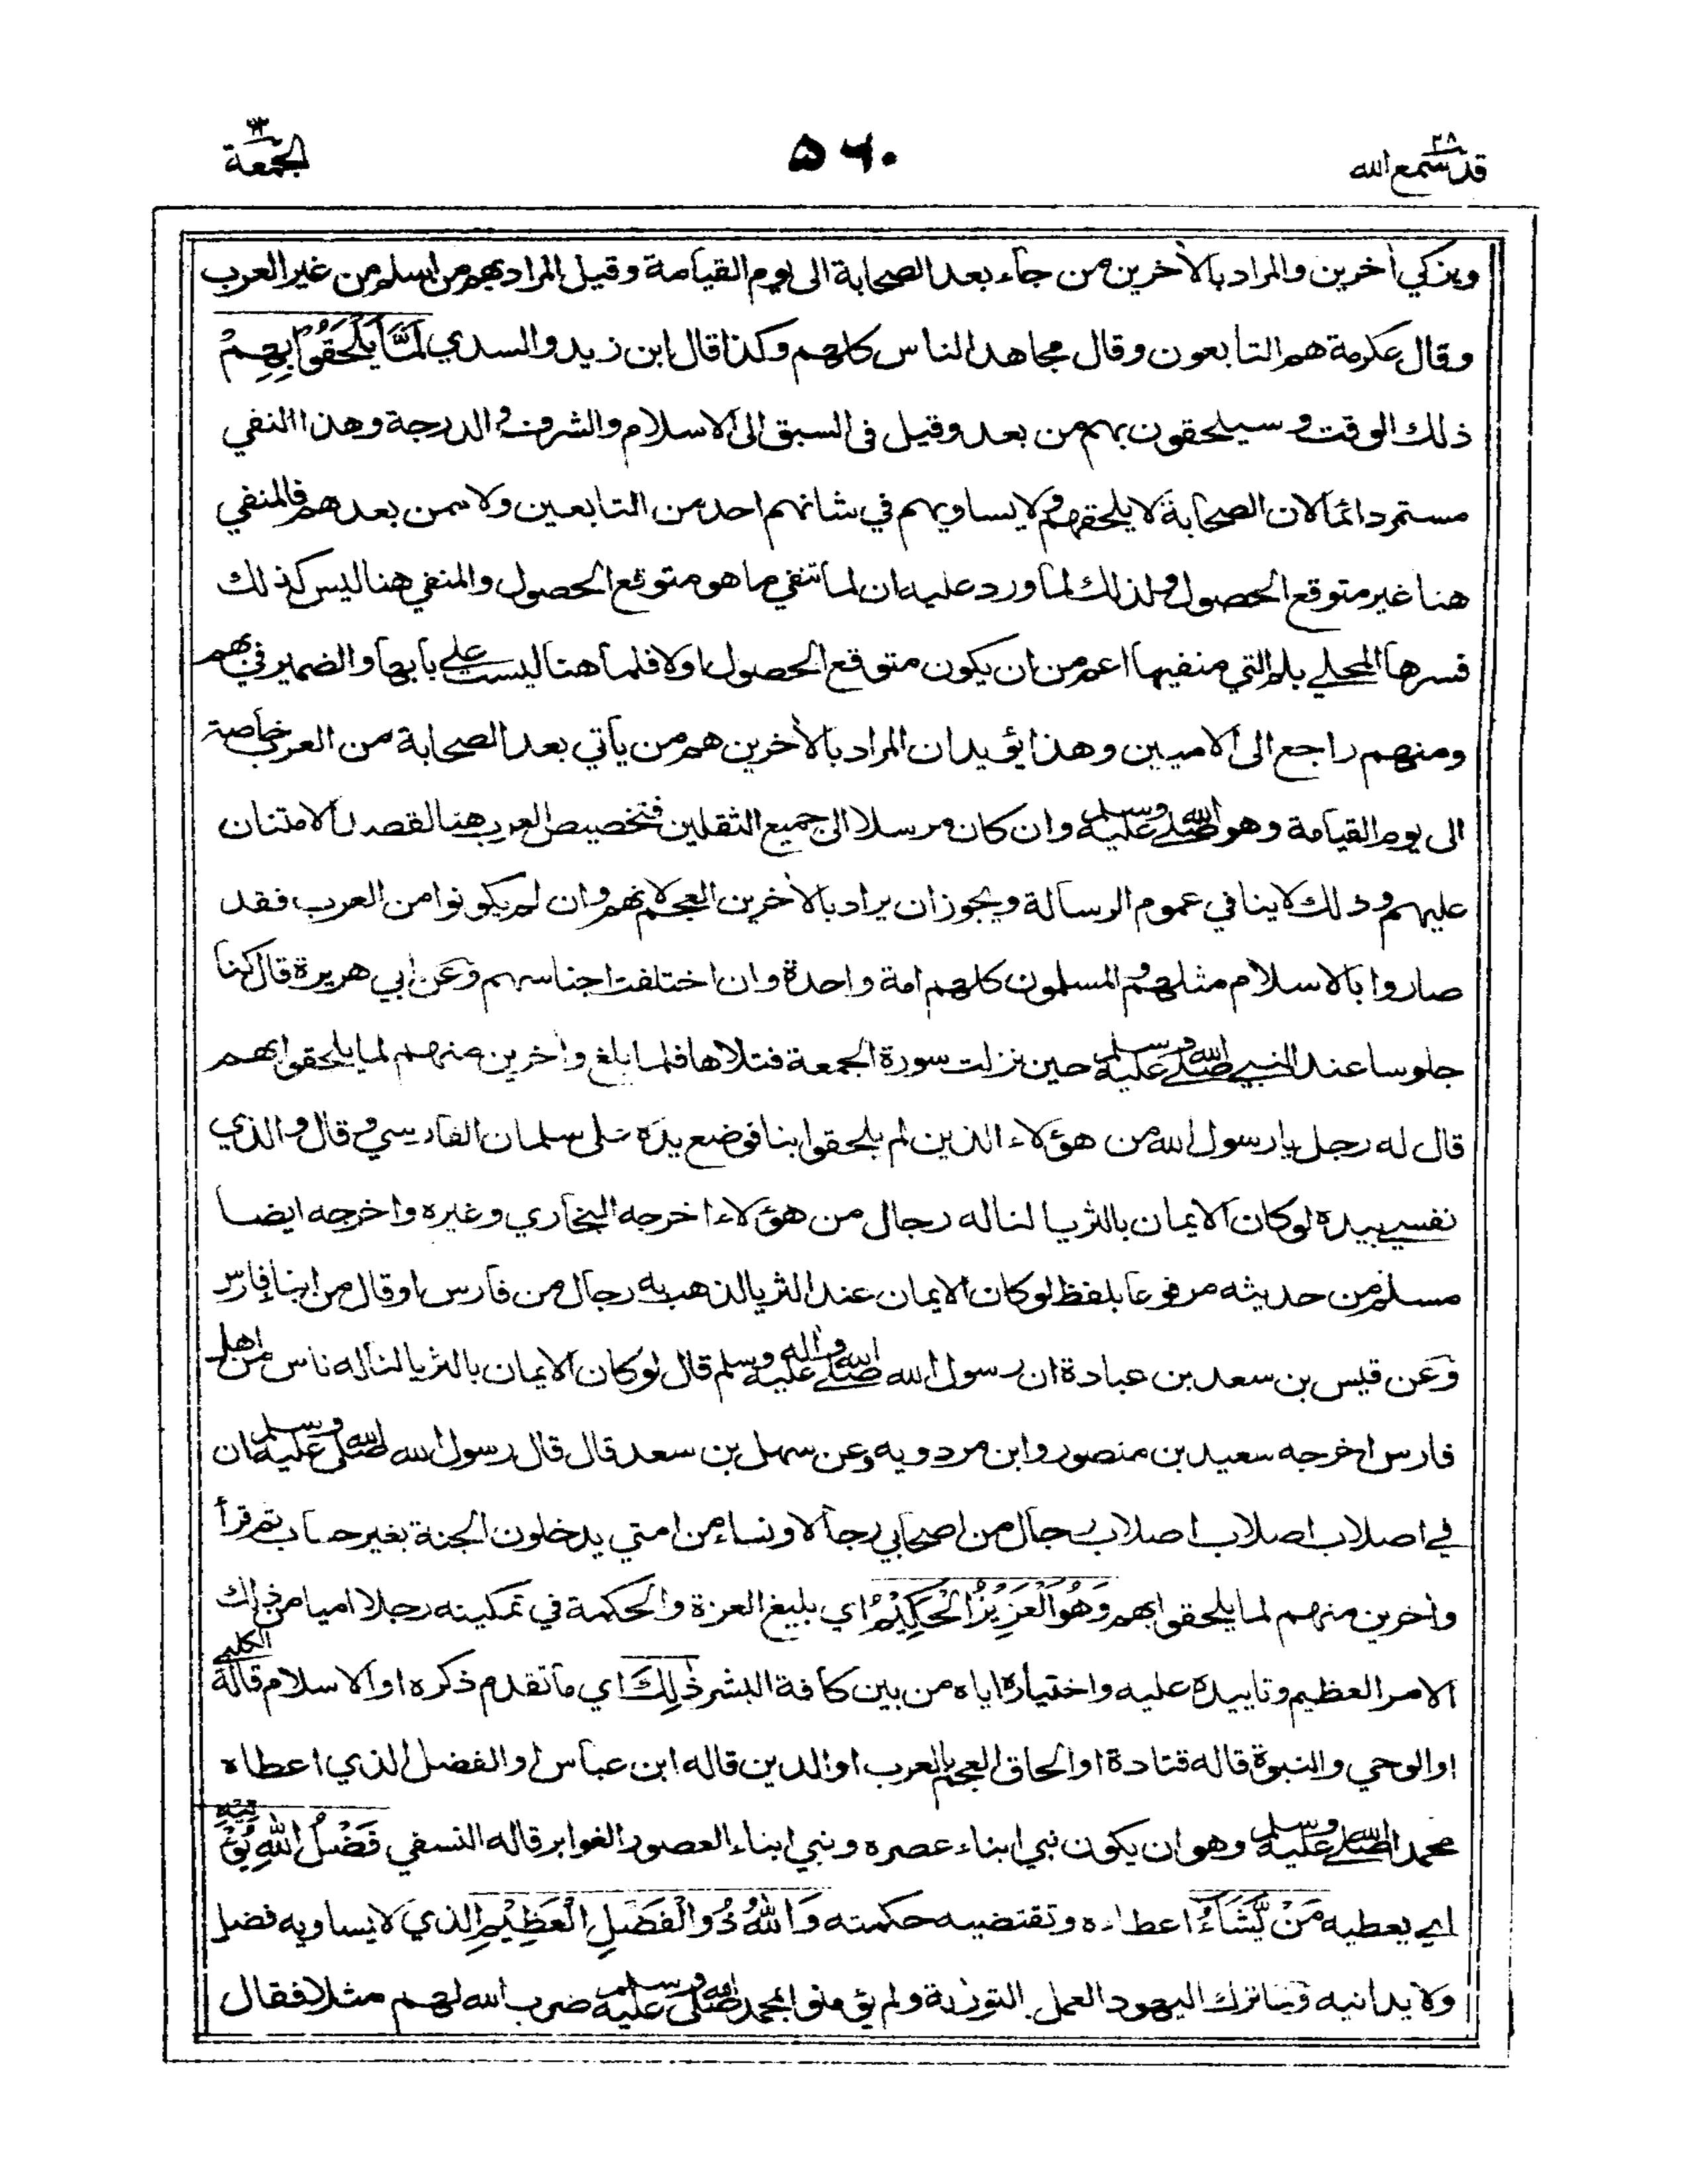 قد سمع الله ٢٨
٥٦٠
الجمعة ٦٢
ويزكي أخرين والمراد بالأخرين من جاء بعد الصحابة الى يوم القيامة وقيل المراد بهم من اسلم من غير العرب
وقال عكرمة هم التابعون وقال مجاهد الناس كلهم وكذا قال ابن زيد والسدي لَمَّا يَلْحَقُوْا بِهِمْ
ذلك الوقت وسيلحقون بهم من بعد وقيل في السبق الى الاسلام والشرف والدرجة وهذا النفي
مستمر دائما لان الصحابة لا يلحقهم ولا يساويهم في شانهم احد من التابعين ولا ممن بعدهم فالمنفي
هنا غير متوقع الحصول ولذلك لما ورد عليه ان لما تنفي ما هو متوقع الحصول والمنفي هنا ليس كذلك
فسرها المحلي بلم التي منفيها اعم من ان يكون متوقع الحصول اولا فلما هنا ليست على بابها والضمير في بهم
ومنهم راجع الى الاميين وهذا يؤيد ان المراد بالأخرين هم من يأتي بعد الصحابة من العرب خاصة
الى يوم القيامة وهو صلى الله عليه وسلم وان كان مرسلا الى جميع الثقلين فتخصيص العرب هنا لقصد الامتنان
عليهم وذلك لا ينافي عموم الرسالة ويجوز ان يراد بالأخرين العجم لانهم وان لم يكونوا من العرب فقد
صاروا بالاسلام مثلهم والمسلمون كلهم امة واحدة وان اختلفت اجناسهم وعن ابي هريرة قال كنا
جلوسا عند النبي صلى الله عليه وسلم حين نزلت سورة الجمعة فتلاها فلما بلغ وأخرين منهم لما يلحقوا بهم
قال له رجل يا رسول الله من هؤلاء الذين لم يلحقوا بنا فوضع يده على سلمان الفارسي وقال والذي
نفسي بيده لو كان الايمان بالثريا لناله رجال من هؤلاء اخرجه البخاري وغيره واخرجه ايضا
مسلم من حديثه مرفوعا بلفظ لو كان الايمان عند الثريا لذهب به رجال من فارس او قال من ابنا فارس
وعن قيس بن سعد بن عبادة ان رسول الله صلى الله عليه واله وسلم قال لو كان الايمان بالثريا لناله ناس من اهل
فارس اخرجه سعيد بن منصور وابن مردويه وعن سهل بن سعد قال قال رسول الله صلى الله عليه وسلم ان
في اصلاب اصلاب اصلاب رجال من اصحابي رجالا ونساء من امتي يدخلون الجنة بغير حساب ثم قرأ
وأخرين منهم لما يلحقوا بهم وَهُوَ الْعَزِيْزُ الْحَكِيْمُ اي بليغ العزة والحكمة في تمكينه رجلا اميا من ذلك
الامر العظيم وتاييده عليه واختياره اياه من بين كافة البشر ذٰلِكَ اي ما تقدم ذكره او الاسلام قاله الكلبي
او الوحي والنبوة قاله قتادة او الحاق العجم بالعرب او الدين قاله ابن عباس او الفضل الذي اعطاه
محمدا صلى الله عليه وسلم وهو ان يكون نبي ابناء عصره ونبي ابناء العصور الغوابر قاله النسفي فَضْلُ اللّٰهِ يُؤْتِيْهِ
اي يعطيه مَنْ يَّشَآءُ اعطاءه وتقتضيه حكمته وَاللّٰهُ ذُو الْفَضْلِ الْعَظِيْمِ الذي لا يساويه فضل
ولا يدانيه ولما ترك اليهود العمل بالتوراة ولم يؤمنوا بمحمد صلى الله عليه وسلم ضرب الله لهم مثلا فقال